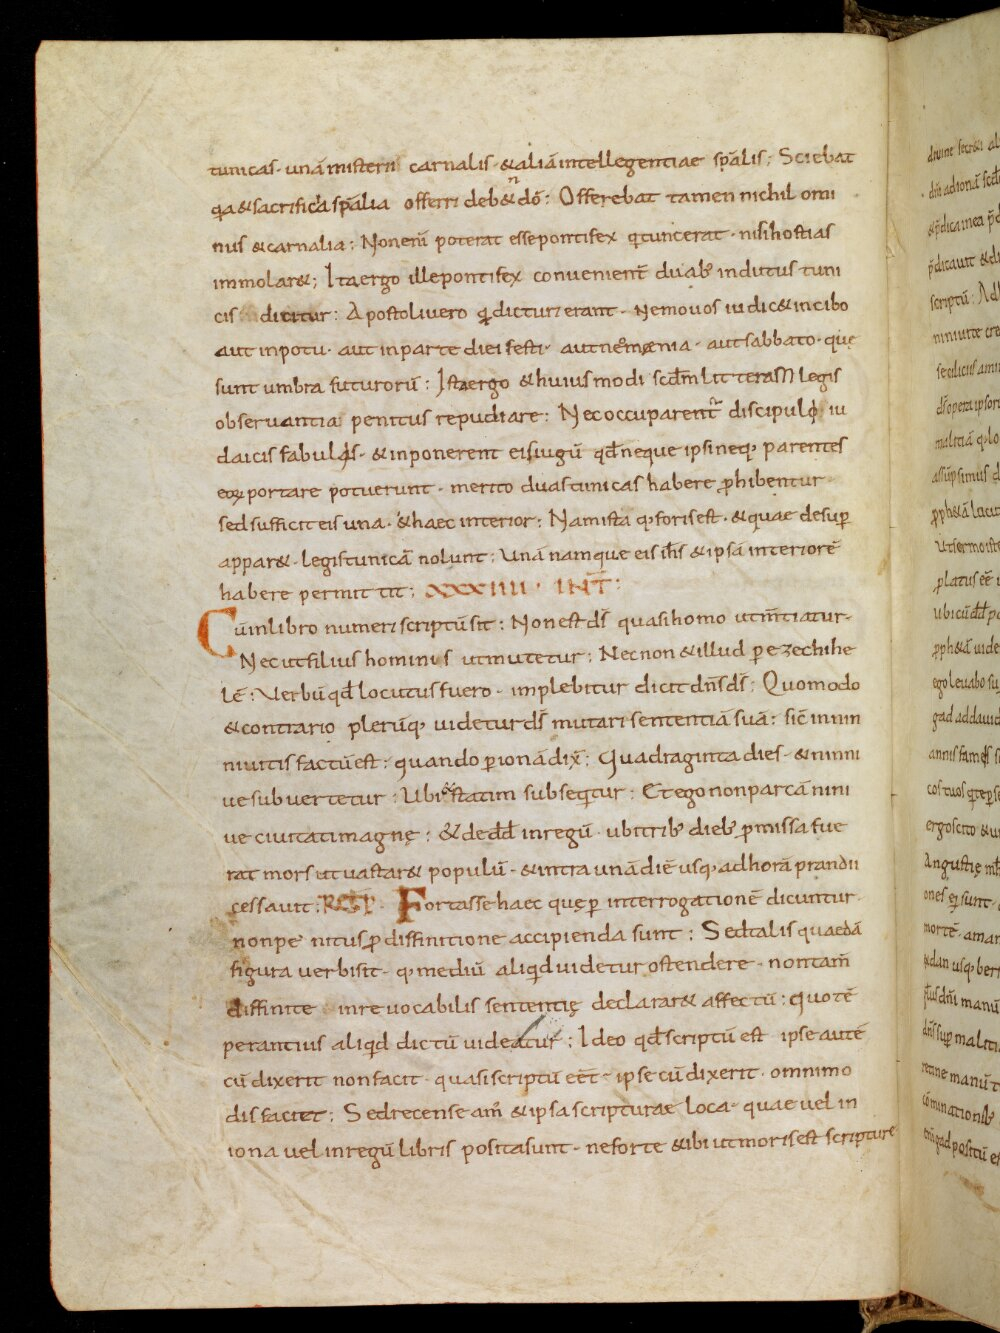 tunicas · unā misterii carnalis · & aliā intellegentiae sp̄alis ; Sciebat
qa & sacrificia sp̄alia offerri deb&ⁿ dō : Offerebat tamen nichil omi
nus & carnalia ; Non enī poterat esse pontifex q tunc erat · nisi hostias
immolar& ; Ita ergo ille pontifex convenient̄ duab; indutus tuni
cis dicitur : Apostoli vero q dicturi erant · Nemo uos iudic& in cibo
aut in potu · aut in parte diei festi · aut neomænia · aut sabbato · quę
sunt umbra futurorū : Ista ergo & huius modi scdm̄ litteram legis
observantia penitus repudiare : Nec occuparent̄ discipulos iu
daicis fabulis · & inponerent eis iugū qđ neque ipsi neq; parentes
eoꝝ portare potuerunt · merito duas tunicas habere ꝓhibentur ·
sed sufficit eis una · & haec interior : Nam ista q; foris est · & quae desup̄
appar& · legis tunicā nolunt : Unā namque eis ih̄s & ipsā interiorē
habere permittit : XXXIIII · INT̄ :
Cūm libro numeri scriptū sit : Non est ds̄ quasi homo ut m̄tiatur ·
Nec ut filius hominis ut mutetur : Nec non & illud p ezechihe
lē : Verbū qđ locutus fuero · implebitur dicit dn̄s ds̄ : Quomodo
& contrario plerūq; uidetur ds̄ mutari sententiā suā : sic̄ in nin
niuitis factū est : quando p ionā dix̄ : Quadraginta dies · & ninni
ue subvertetur : Ubi & statim subseqtur : Et ego non parcā nini
ue ciuitati magnę : & de dd̄ in regū · ubi trib; dieb; ꝓmissa fue
rat mors ut vastar& populū · & intra unā diē usq; ad horā prandii
cessauit : RESP · Fortasse haec quę p interrogationē dicuntur ·
non penitus ꝓ diffinitione accipienda sunt : Sed talis quaedā
figura uerbi sit · q; mediū aliqd uidetur ostendere · non tam̄
diffinite inrevocabilis sententię declarar& affectū : quotē
perantius aliqd dictū uideatur : Ideo qđ scriptū est ipse autē
cū dixerit non facit · quasi scriptū eēt · ipse cū dixerit · omnimo
dis faciet : Sed recenseam̄ & ipsa scripturae loca · quae vel in
iona uel in regū libris posita sunt · ne forte & ibi ut moris est scripturę